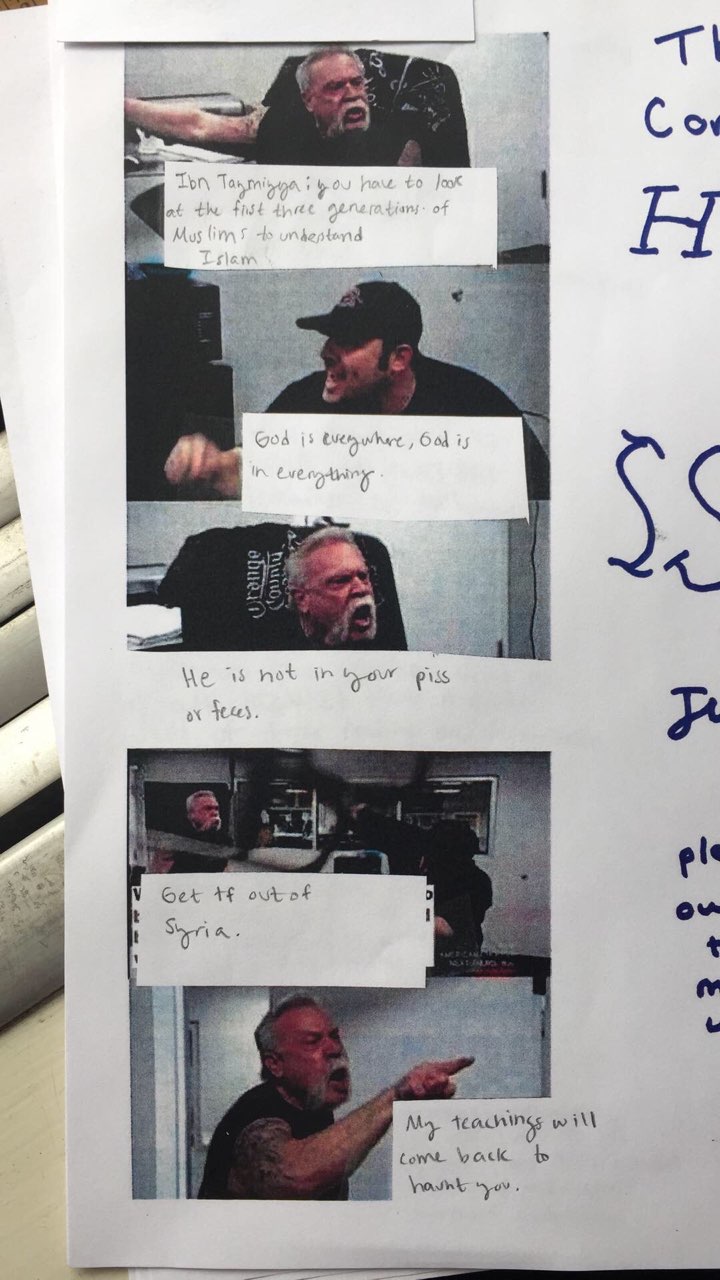 Th
Con
H
Ibn Taymiyya: you have to look
at the first three generations of
Muslims to understand
Islam
God is everywhere, God is
in everything.
Orange
County
He is not in your piss
or feces.
Get tf out of
Syria.
My teachings will
come back to
haunt you.
Ju
ple
ou
t
m